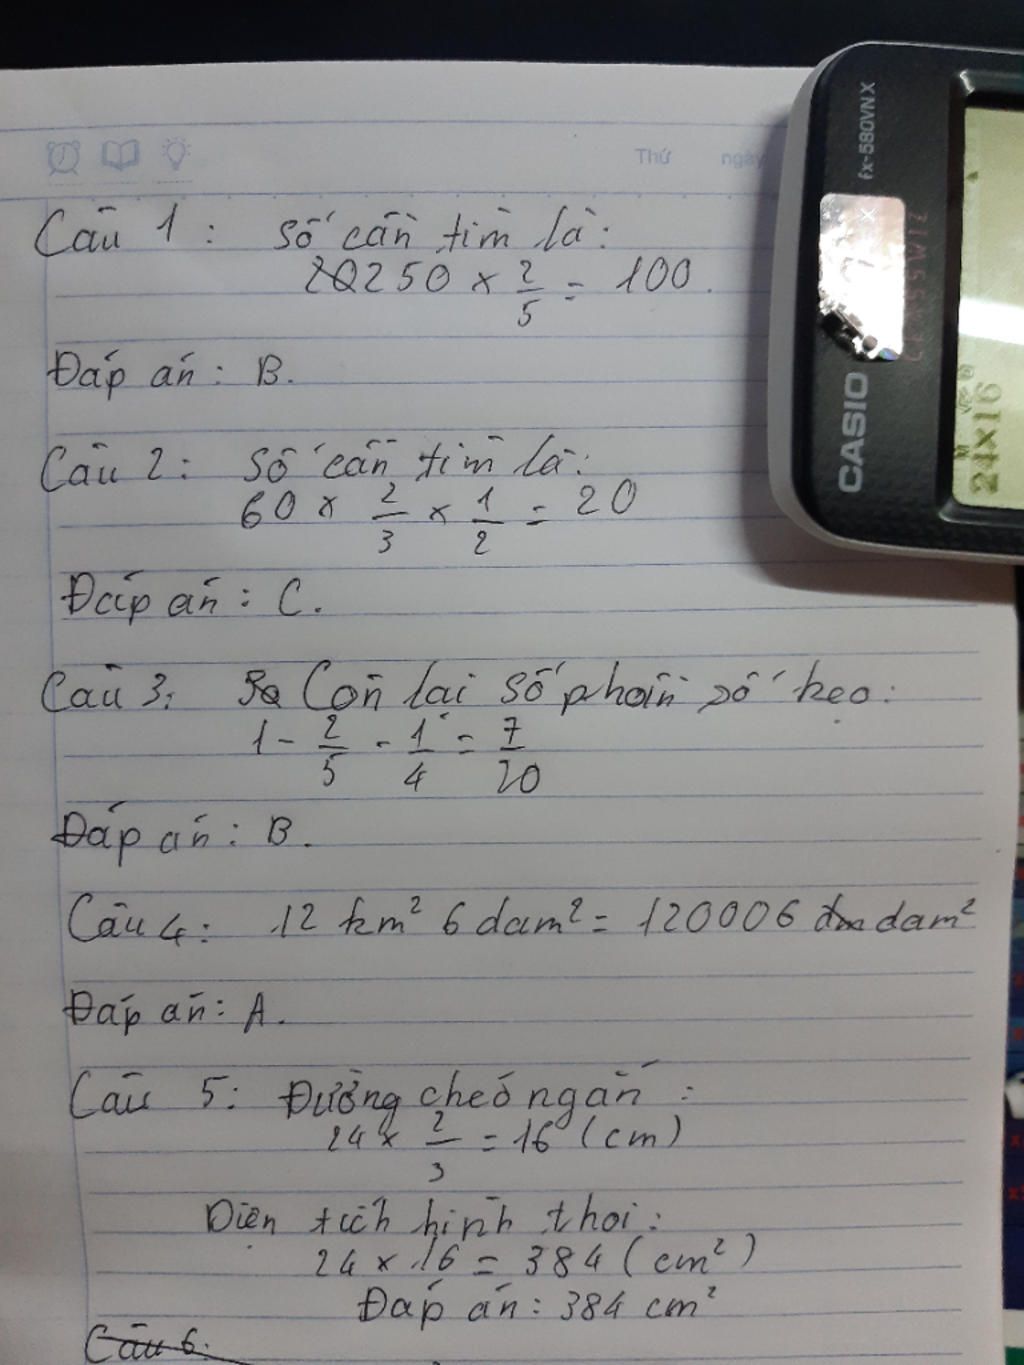 Thứ ngày
Câu 1: Số cần tìm là:
250 × 2/5 = 100.
Đáp án: B.
Câu 2: Số cần tìm là:
60 × 2/3 × 1/2 = 20
Đáp án: C.
Câu 3: Còn lại số phần số kẹo:
1 - 2/5 - 1/4 = 7/20
Đáp án: B.
Câu 4: 12 km² 6 dam² = 120006 dam²
Đáp án: A.
Câu 5: Đường chéo ngắn:
24 × 2/3 = 16 (cm)
Diện tích hình thoi:
24 × 16 = 384 (cm²)
Đáp án: 384 cm²
Câu 6:
fx-580VN X
CLASSWIZ
CASIO
24×16